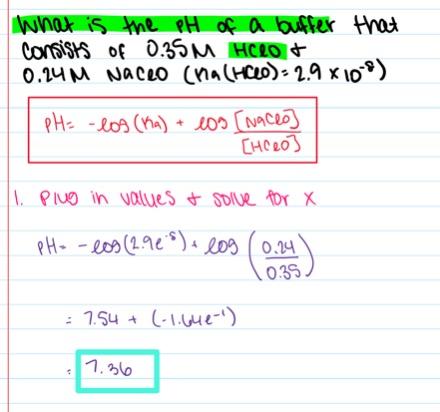 What is the pH of a buffer that
consists of 0.35M HClO &
0.24M NaClO (Ka(HClO) = 2.9 × 10⁻⁸)
PH= -log (Ka) + log [NaClO]
[HClO]
1. Plug in values & solve for x
PH= -log(2.9e⁻⁸) + log (0.24
0.35)
= 7.54 + (-1.64e⁻¹)
= 7.36